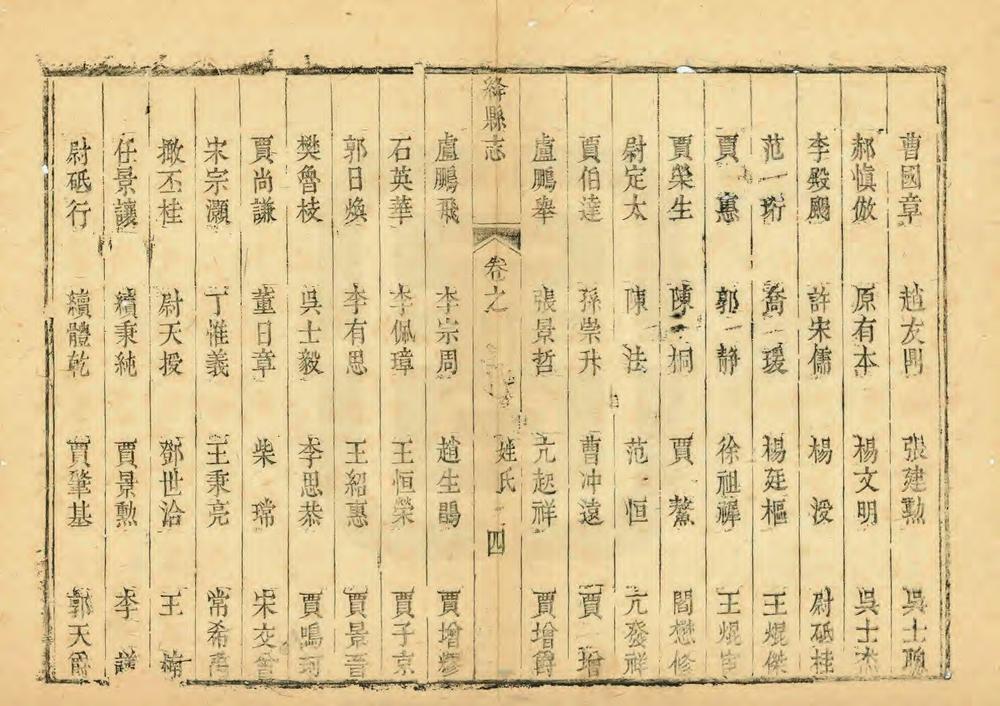 曹國章 趙友閆 張建勲 吳士
郝慎倣 原有本 楊文明 吳士杰
李殿颺 許宋儒 楊 浸 尉砥桂
范一珩 喬一瑗 楊廷樞 王焜傑
賈 惠 郭一靜 徐祖禪 王焜
賈榮生 陳 桐 賈 鰲 閻懋修
尉定太 陳 法 范 恒 亢發祥
賈伯達 孫崇升 曹冲遠 賈 增
盧鵬舉 張景哲 亢起祥 賈增爵
絳縣志 卷之 姓氏 四
盧鵬飛 李宗周 趙生鵾 賈增
石英華 李佩璋 王恒榮 賈子京
郭日煥 李有思 王紹惠 賈景
樊魯枝 吳士毅 李思恭 賈鳴珂
賈尚謙 董日章 柴 瑺 宋文
宋宗灝 丁惟義 王秉亮 常希
撖丕桂 尉天授 鄧世洽 王
任景讓 續秉純 賈景勲 李
尉砥行 續體乾 賈肇基 郭天爵